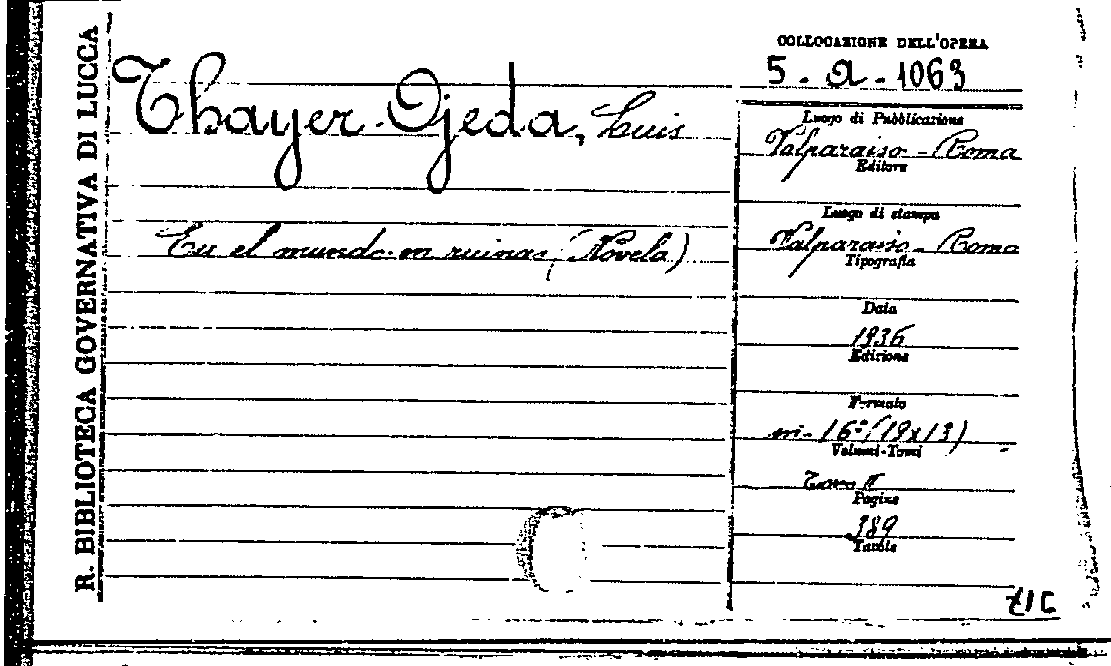 R. BIBLIOTECA GOVERNATIVA DI LUCCA
Thayer-Ojeda, Luis
En el mundo en ruinas (Novela)
COLLOCAZIONE DELL'OPERA
5-a-1063
Luogo di Pubblicazione
Valparaiso - Roma
Editore
Luogo di stampa
Valparaiso - Roma
Tipografia
Data
1936
Edizione
Formato
in-16° (19x13)
Volumi-Tomi
Tomo II
Pagine
389
Tavole